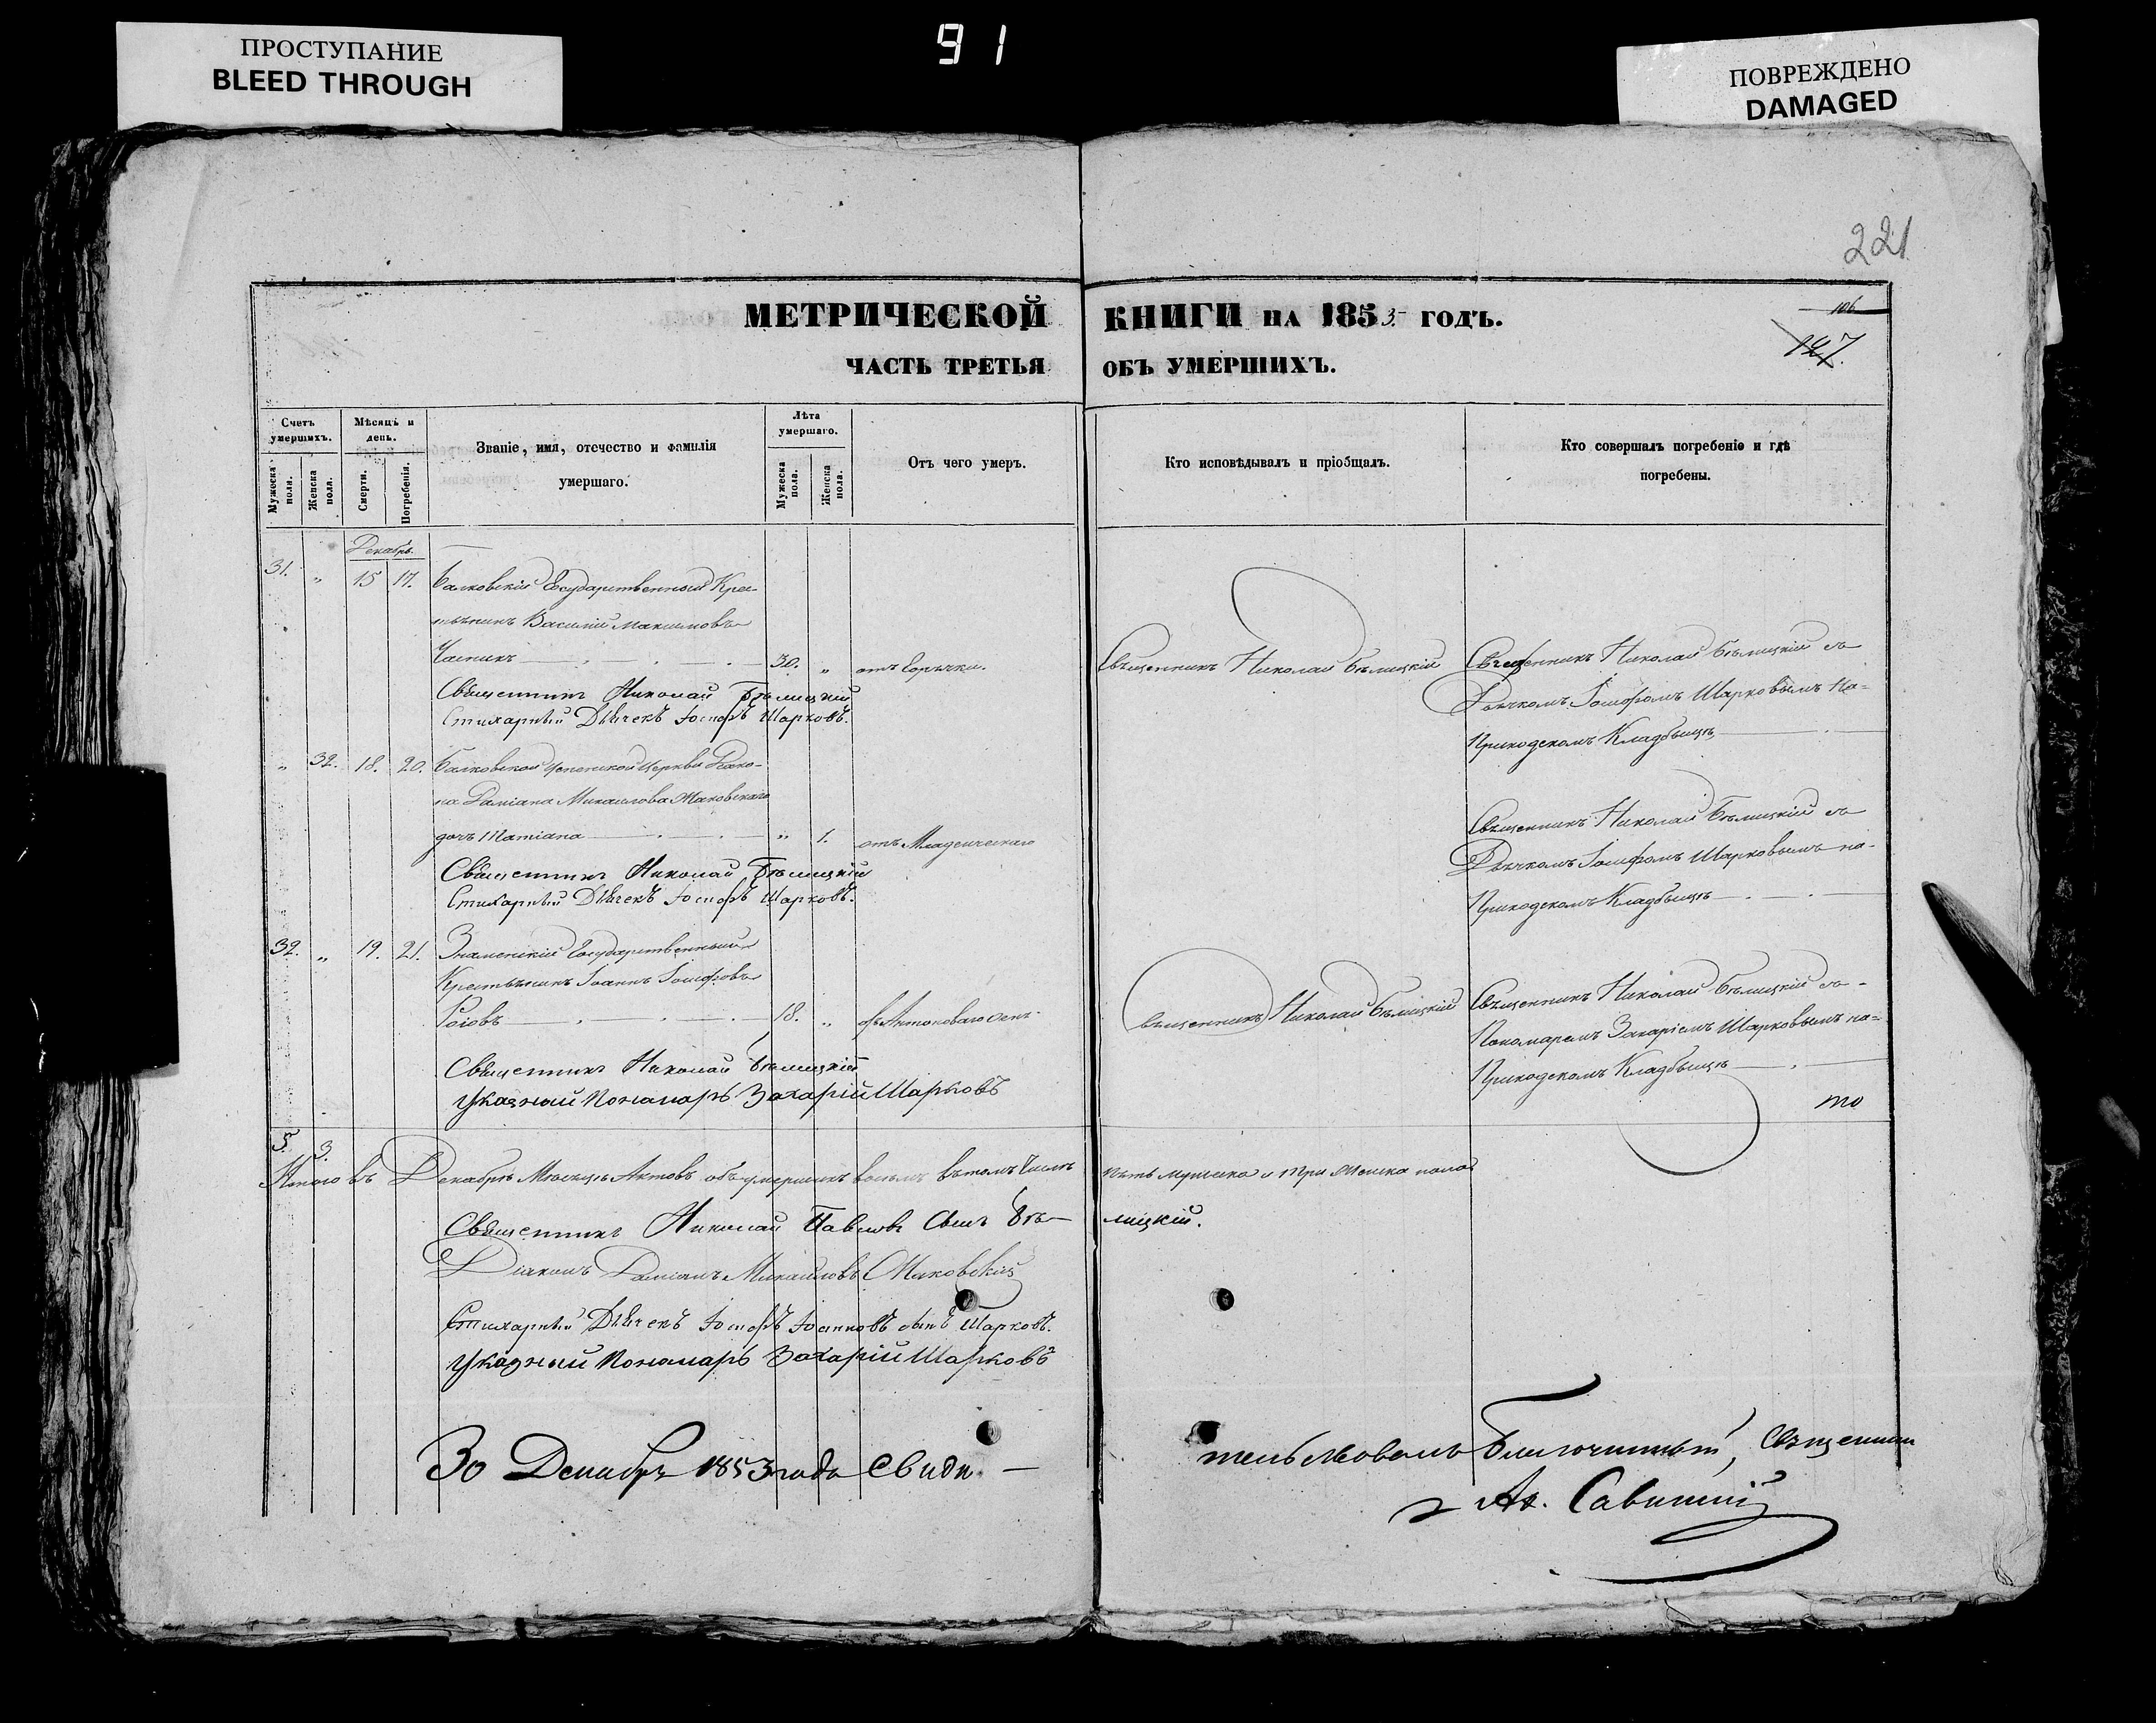 ПРОСТУПАНИЕ
BLEED THROUGH
91
ПОВРЕЖДЕНО
DAMAGED
221
МЕТРИЧЕСКОЙ КНИГИ НА 1853 ГОДЪ.
106
127.
ЧАСТЬ ТРЕТЬЯ ОБЪ УМЕРШИХЪ.
Счетъ умершихъ.
Мужеска пола.
Женска пола.
Мѣсяцъ и день.
Смерти.
Погребенія.
Званіе, имя, отечество и фамилія умершаго.
Лѣта умершаго.
Мужеска пола.
Женска пола.
Отъ чего умеръ.
Кто исповѣдывалъ и пріобщалъ.
Кто совершалъ погребеніе и гдѣ погребены.
Декабрь.
31. " 15 17. Балковскій Государственный Крес-
тьянинъ Василій Максимовъ
30. " отъ Горячки. Священникъ Николай Бѣлицкій Священникъ Николай Бѣлицкій съ
Священникъ Николай Бѣлицкій
Дьячкомъ Іосифомъ Шарковымъ на-
Стихарный Дьячекъ Іосифъ Шарковъ.
Приходскомъ Кладбищѣ
" 32. 18. 20. Балковской Успенской Церкви Діако-
на Даміана Михаилова Маковскаго
Священникъ Николай Бѣлицкій съ
дочь Татіана " 1. отъ Младенческаго
Дьячкомъ Іосифомъ Шарковымъ на-
Священникъ Николай Бѣлицкій
Стихарный Дьячекъ Іосифъ Шарковъ.
Приходскомъ Кладбищѣ
32. " 19. 21. Знаменскій Государственный
Крестьянинъ Іоаннъ Іосифовъ
18. " Священникъ Николай Бѣлицкій Священникъ Николай Бѣлицкій съ-
Пономаремъ Захаріемъ Шарковымъ на-
Священникъ Николай Бѣлицкій
Приходскомъ Кладбищѣ
Указный Пономарь Захарій Шарковъ
то
5. 3.
Итого въ Декабрѣ Мѣсяцѣ Актовъ объ умершихъ восемь въ томъ Числѣ пять мужеска и три женска пола
Священникъ Николай Павловъ Сынъ Бѣ-лицкій.
Діаконъ Даміанъ Михаиловъ Маковскій
Стихарный Дьячекъ Іосифъ Іоанновъ сынъ Шарковъ.
Указный Пономарь Захарій Шарковъ
30 Декабря 1853 года Свидѣ-тельствовалъ Благочинный, Священник
Ал. Савицкій